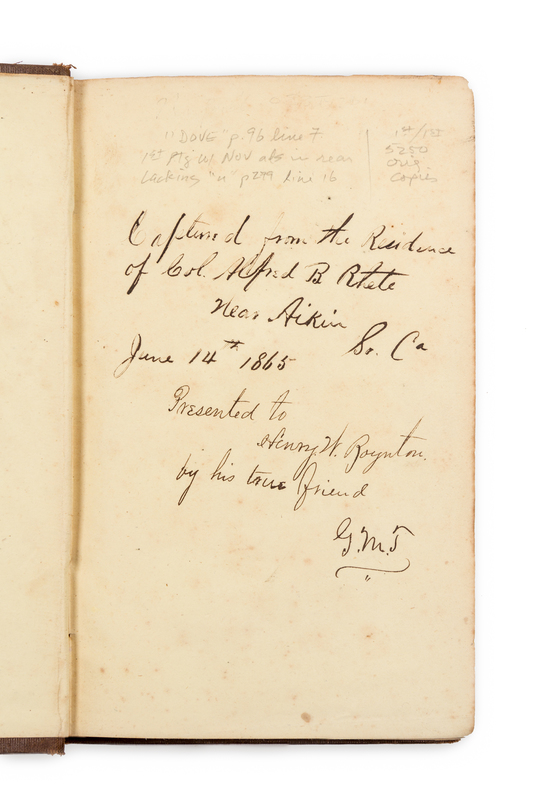 "DOVE" p. 96 line 7
1st Ptg w/ NOV ads in rear
lacking "u" p 299 line 16
1st/1st
5250
orig.
copies
Captured from the Residence
of Col. Alfred B Rhete
Near Aikin
So. Ca
June 14th 1865
Presented to
Henry. W. Boynton.
by his true friend
G.M.T